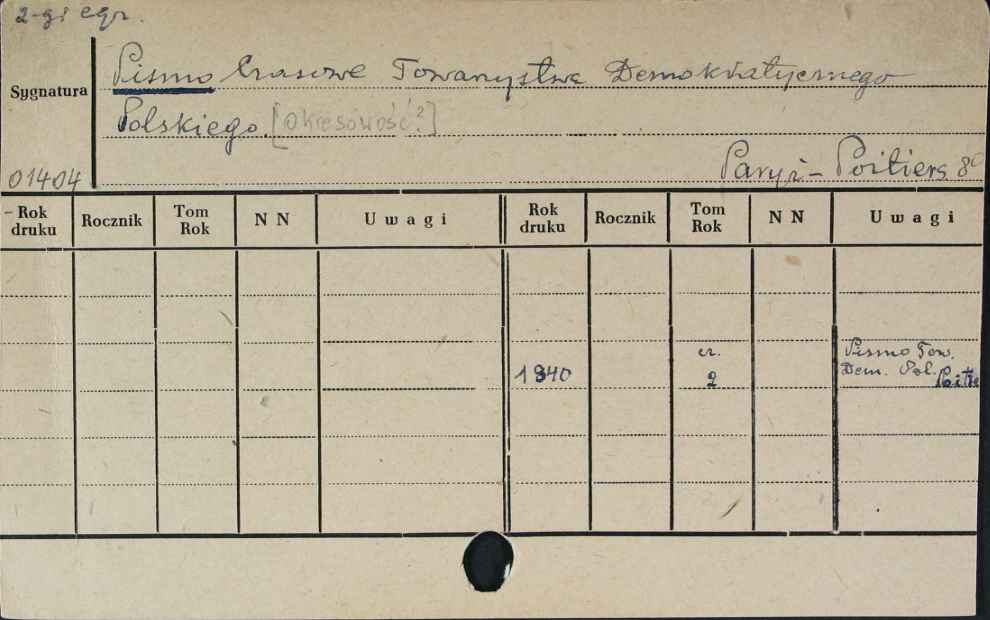 2-gi egz.
Pismo Czasowe Towarzystwa Demokratycznego
Sygnatura
Polskiego. [Okresowość?]
01404
Paryż - Poitiers 8°
Rok druku Rocznik Tom Rok N N Uwagi Rok druku Rocznik Tom Rok N N Uwagi
cz. Pismo Tow.
1840 2 Dem. Pol. Poitie